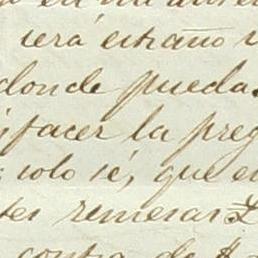 será estraño
donde pueda
facer la preg
solo sé, que e
tes remesas
contra de